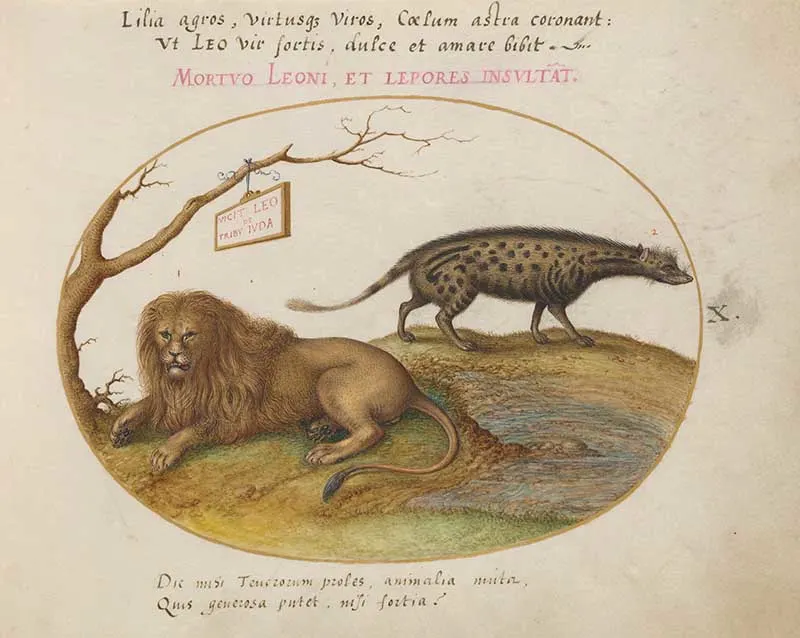 Lilia agros, virtusqꝫ viros, Cœlum astra coronant:
Vt LEO vir fortis, dulce et amare bibit
MORTVO LEONI, ET LEPORES INSVLTÃT.
VICIT LEO
DE
TRIBV IVDA
1
2
X.
Dic mihi Teucrorum proles, animalia muta,
Quis generosa putet, nisi fortia?